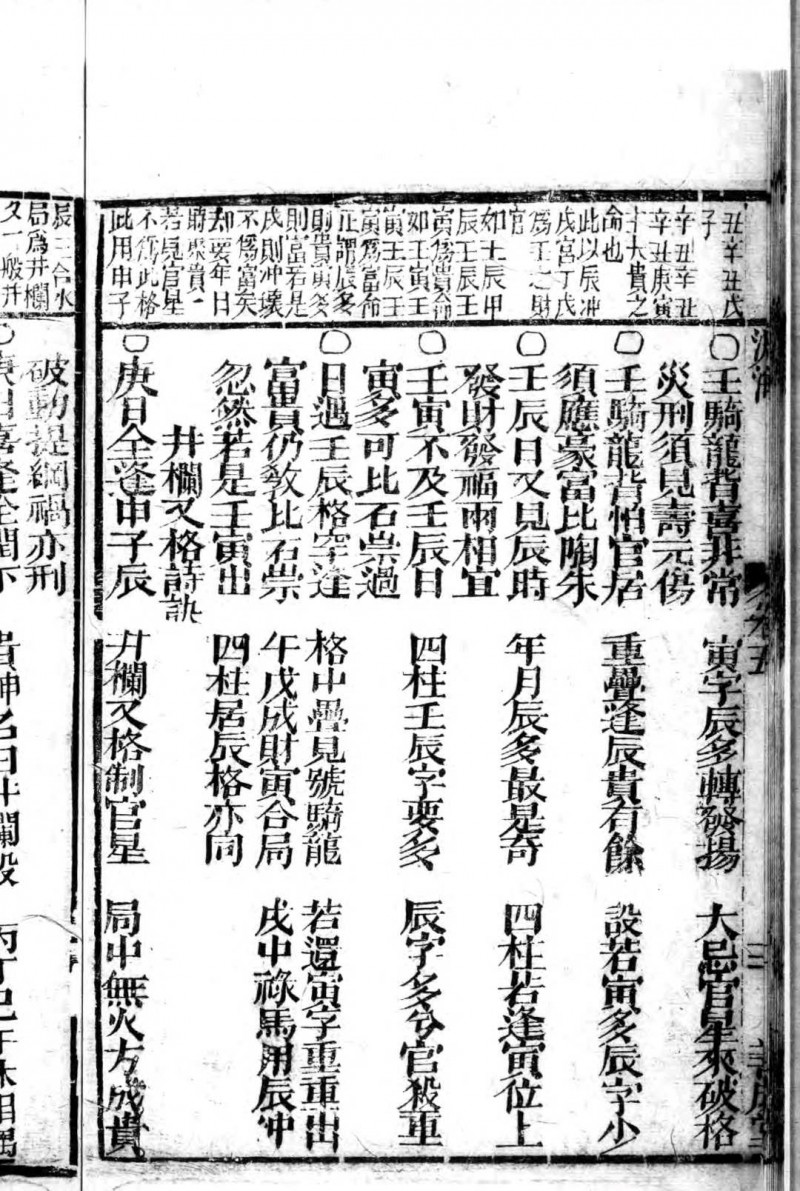 丑辛丑戊
子
辛丑辛丑
辛丑庚寅
十大貴之
命也
此以辰冲
戌宮丁戊
爲壬之財
官
如壬辰甲
辰壬辰壬
寅爲貴命
如壬寅壬
寅壬辰壬
寅爲富命
正謂辰多
則貴寅多
則富若是
戌則冲壞
不爲富矣
却要年日
時聚貴一
若見官星
不爲此格
此用申子
壬騎龍背喜非常 寅字辰多轉發揚 大忌官星來破格
災刑須見壽元傷
壬騎龍背怕官居 重疊逢辰貴有餘 設若寅多辰字少
須應豪富比陶朱
壬辰日又見辰時 年月辰多最是奇 四柱若逢寅位上
發財發福兩相宜
壬寅不及壬辰日 四柱壬辰字要多 辰字多兮官殺重
寅多可比石崇過
日遇壬辰格罕逢 格中疊見號騎龍 若還寅字重重出
富貴仍教比石崇 午戌成財寅合局 戌中祿馬用辰冲
忽然若是壬寅出 四柱居辰格亦同
井欄叉格詩訣
庚日全逢申子辰 井欄叉格制官星 局中無火方成貴
卷五
善成堂
辰三合水
局爲井欄
叉一般井
破動提綱禍亦刑
庚日喜逢全閏下 貴神名曰井欄